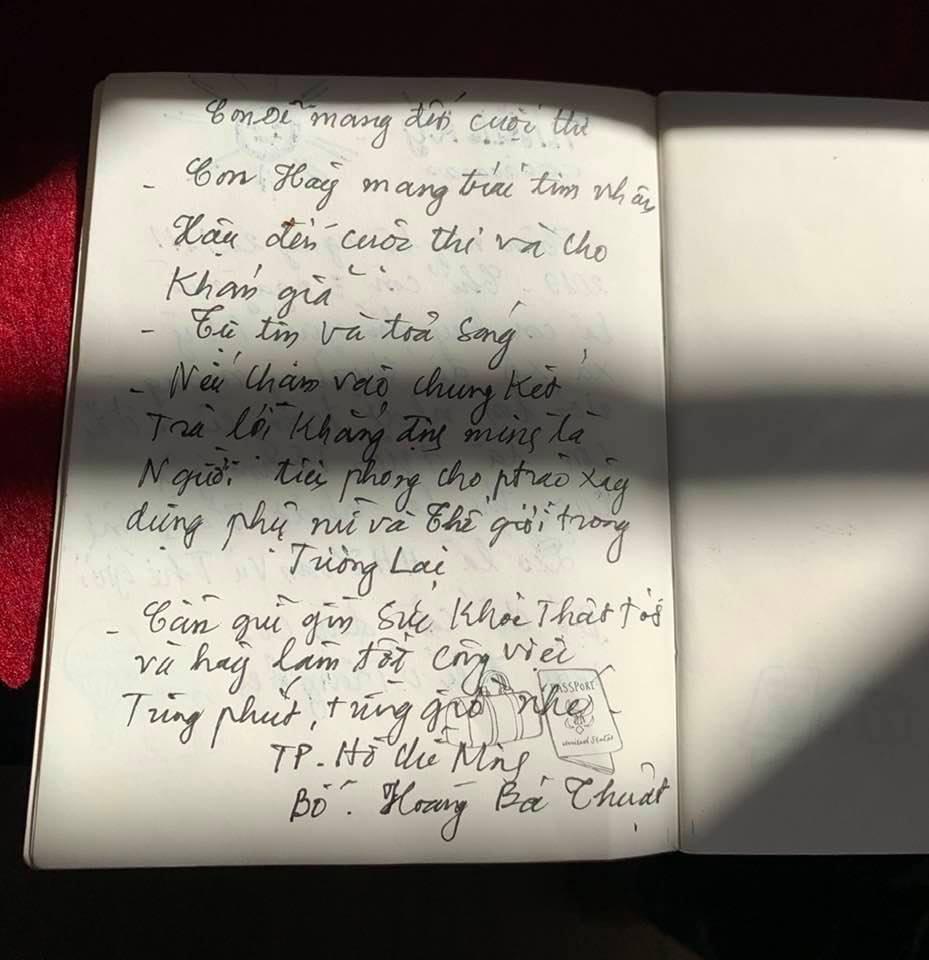 Con Để mang đến cuộc thi
- Con Hãy mang trái tim nhân
Hậu đến cuộc thi và cho
Khán giả
- Tự tin và toả sáng
- Nếu Chạm vào chung kết
Trả lời khẳng định mình là
Người tiên phong cho ptrào xây
dựng phụ nữ và Thế giới trong
Tương Lai
- Cần giữ gìn Sức Khỏe Thật tốt
và hãy làm tốt công việc
Từng phút, từng giờ nhé
PASSPORT
United States
TP. Hồ Chí Minh
Bố: Hoàng Bá Thuật